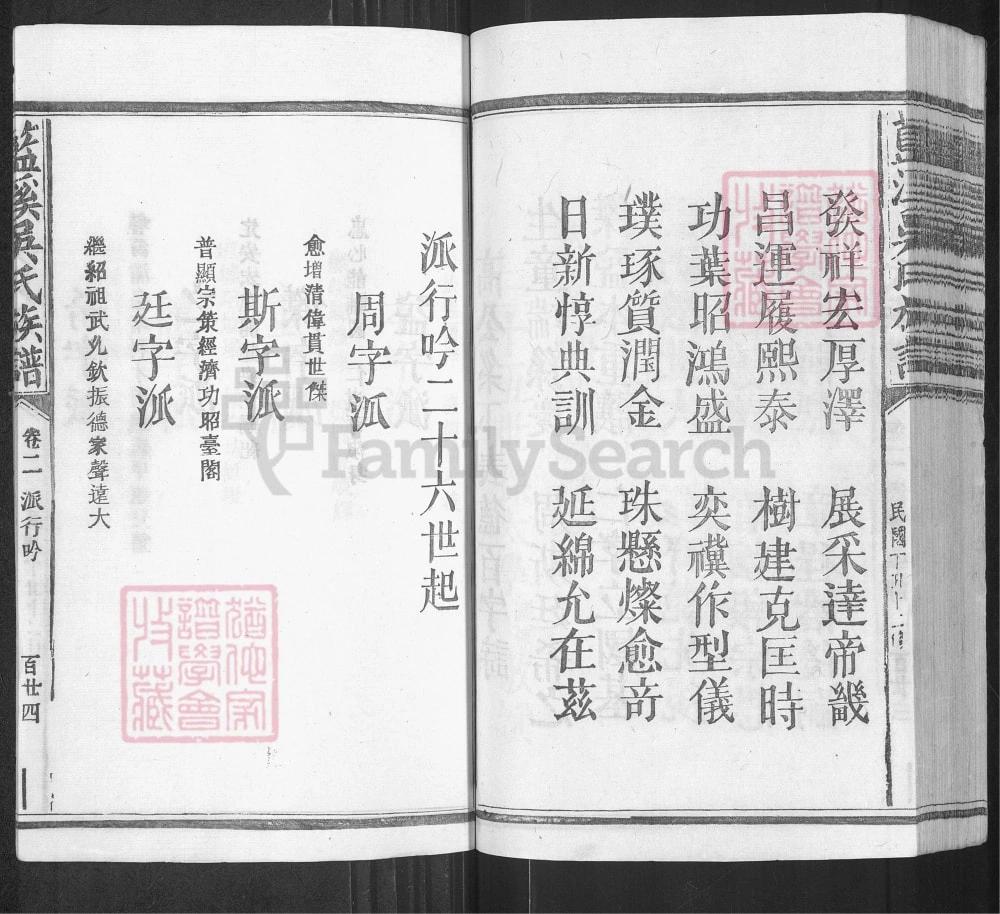 發祥宏厚澤 展采達帝畿
昌運履熙泰 樹建克匡時
功葉昭鴻盛 奕禩作型儀
璞琢質潤金 珠懸燦愈奇
日新惇典訓 延綿允在茲
派行吟二十六世起
周字派
愈增清偉貫世傑
斯字派
普顯宗策經濟功昭臺閣
廷字派
繼紹祖武光欽振德家聲遠大
藍溪吳氏族譜
卷二 派行吟
百廿四
FamilySearch